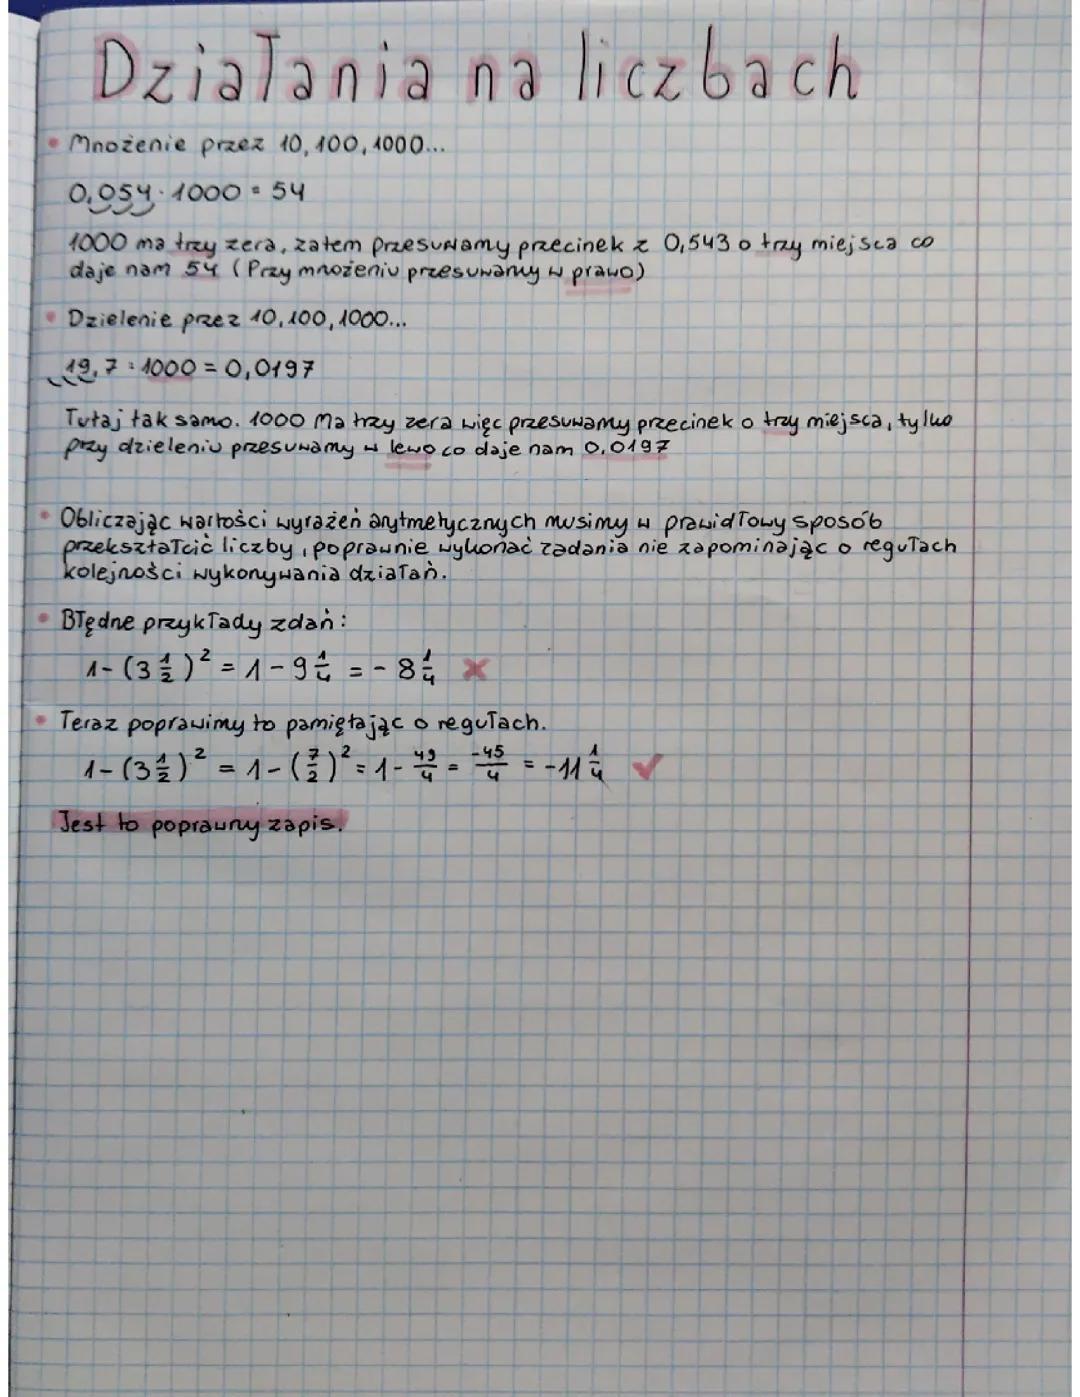 Działania na liczbach
• Mnożenie przez 10, 100, 1000...
0,054 · 1000 = 54
1000 ma trzy zera, zatem przesuwamy przecinek z 0,543 o trzy miejsca co
daje nam 54 (Przy mnożeniu przesuwamy w prawo)
• Dzielenie przez 10, 100, 1000...
19,7 : 1000 = 0,0197
Tutaj tak samo. 1000 ma trzy zera więc przesuwamy przecinek o trzy miejsca, tylko
przy dzieleniu przesuwamy w lewo co daje nam 0,0197
• Obliczając wartości wyrażeń arytmetycznych musimy w prawidłowy sposób
przekształcić liczby, poprawnie wykonać zadania nie zapominając o regułach
kolejności wykonywania działań.
• Błędne przykłady zdań:
1-(3 1/2)² = 1 - 9 1/4 = - 8 1/4 ×
• Teraz poprawimy to pamiętając o regułach.
1-(3 1/2)² = 1-(7/2)² = 1 - 49/4 = -45/4 = -11 1/4 ✓
Jest to poprawny zapis.